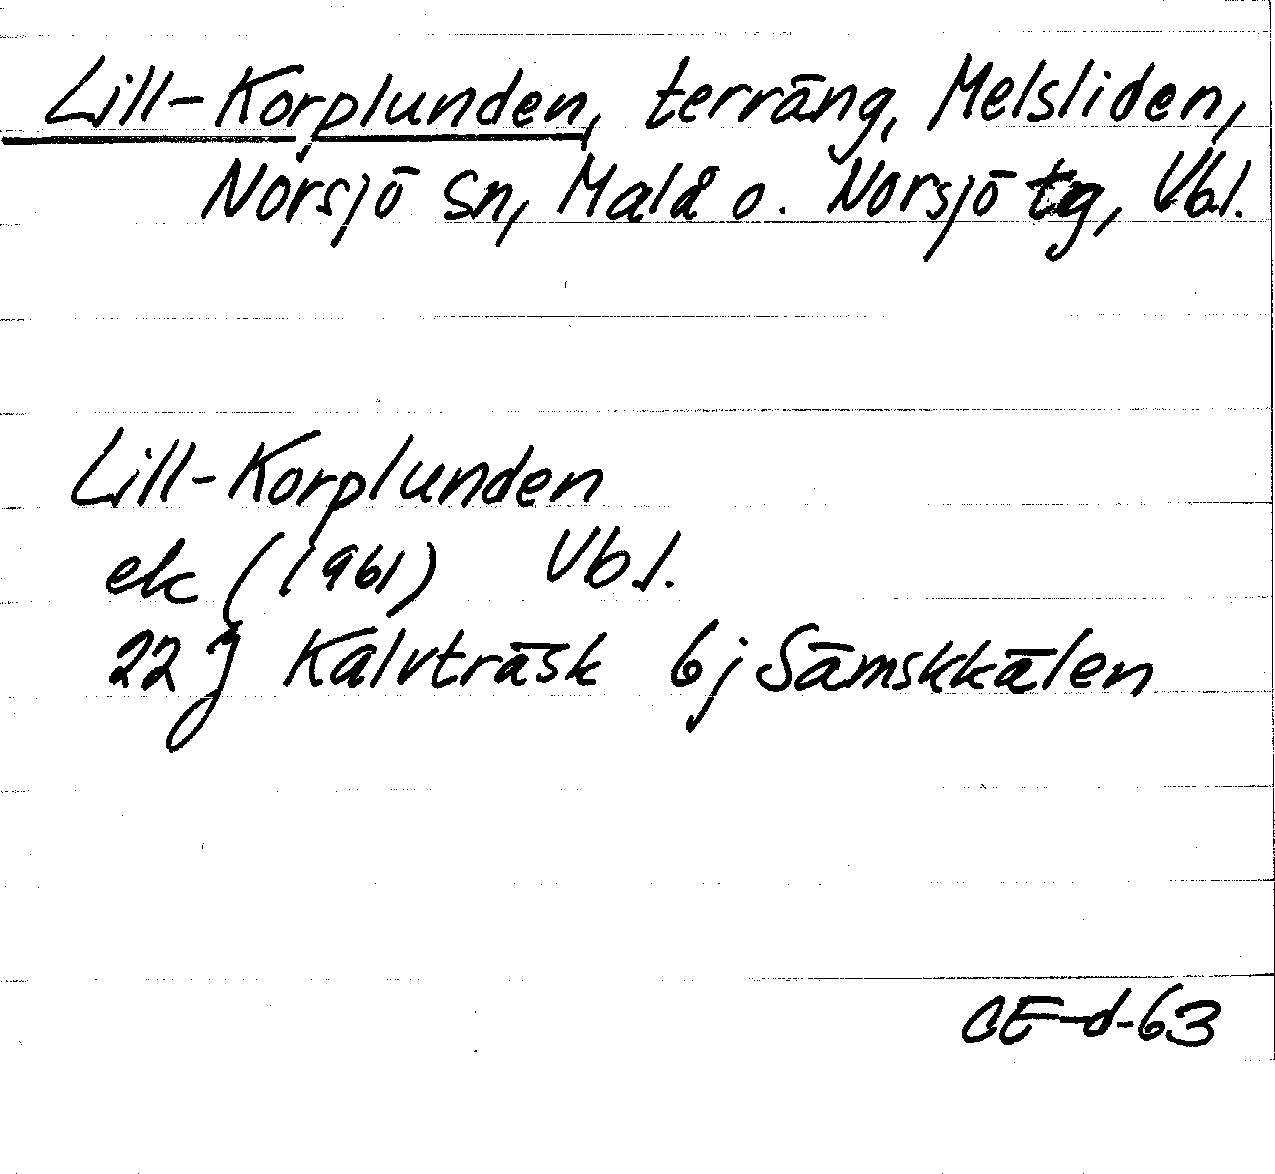 Lill-Korplunden, terräng, Melsliden,
Norsjö sn, Malå o. Norsjö tg, Vbl.
Lill-Korplunden
ek (1961) Vbl.
22 J Kalvträsk 6j Sämskkälen
CE-d-63